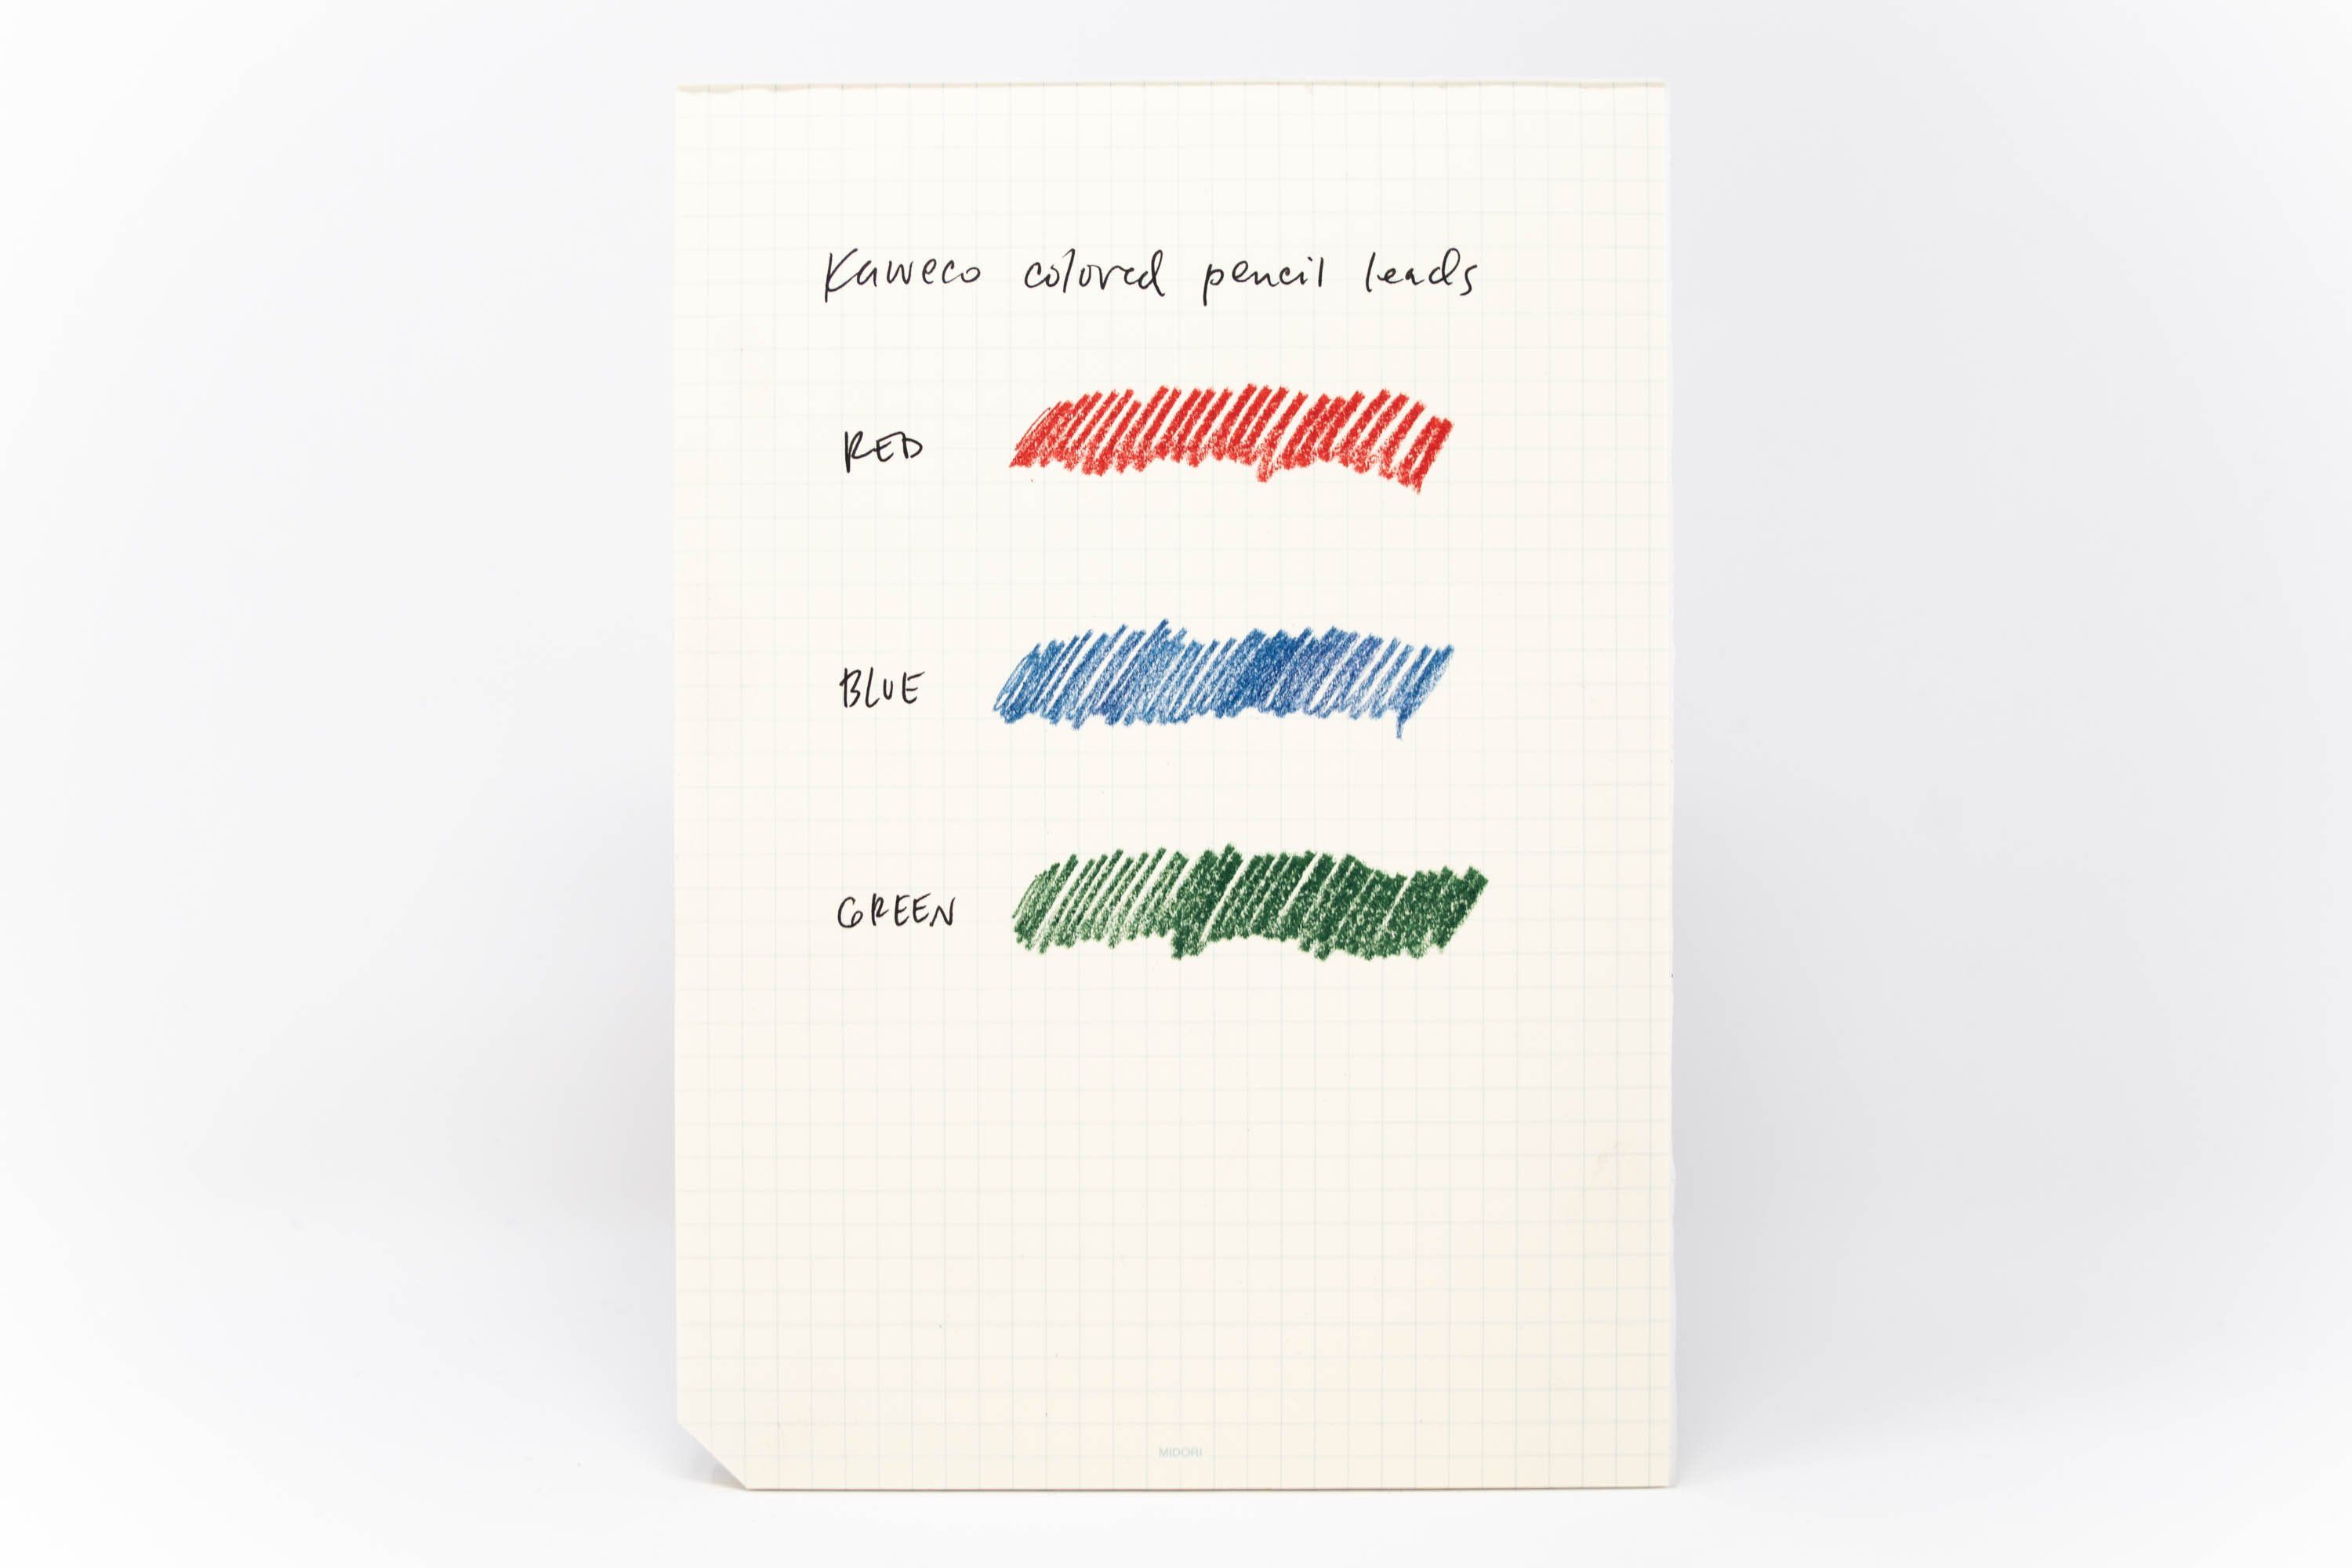 Kaweco colored pencil leads
RED
BLUE
GREEN
MIDORI